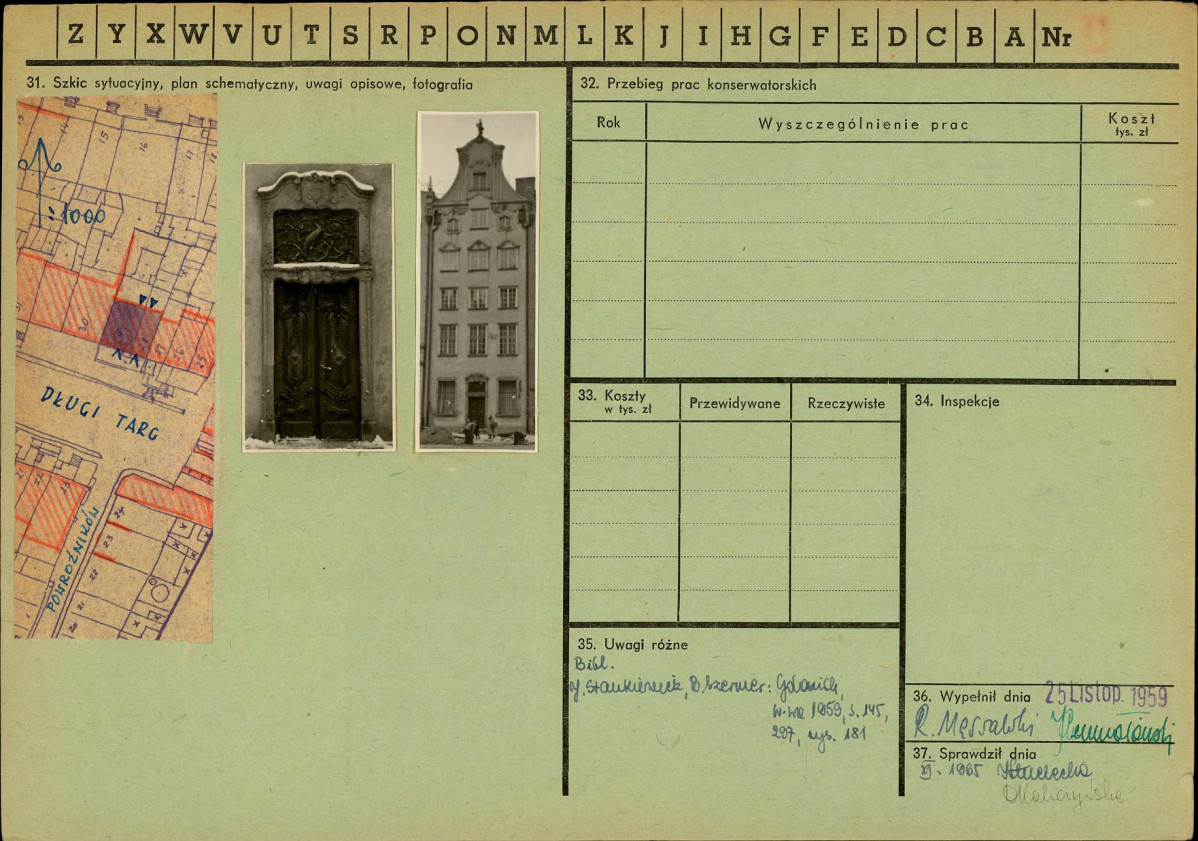 Z Y X W V U T S R P O N M L K J I H G F E D C B A Nr
31. Szkic sytuacyjny, plan schematyczny, uwagi opisowe, fotografia
:1000
15
16
17
30
26
25
DŁUGI TARG
POWROŹNIKÓW
24
23
22
21
20
32. Przebieg prac konserwatorskich
Rok
Wyszczególnienie prac
Koszt
tys. zł
33. Koszty
w tys. zł
Przewidywane
Rzeczywiste
34. Inspekcje
35. Uwagi różne
Bibl.
J. Stankiewicz, B. Szermer: Gdańsk,
W-wa 1959, s. 145,
297, rys. 181
36. Wypełnił dnia 25 Listop. 1959
R. Massalski
37. Sprawdził dnia
XI. 1965